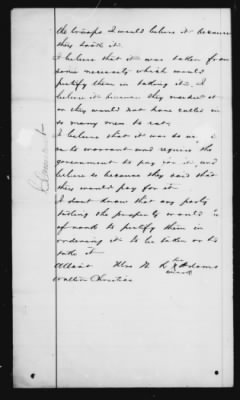 the troops I would believe it because
they took it.
I believe that it was taken from
some necessity which would
justify them in taking it. I
believe it because they needed it
or they would not have called in
so many men to eat.
I believe that it was so as
to warrant and require the
government to pay for it, and
believe so because they said that
they would pay for it
I dont know that any party
taking the property would
justify them in
ordering it to be taken or to
take it
Attest Mrs her Adams
mark
Walton Christian
Claimant